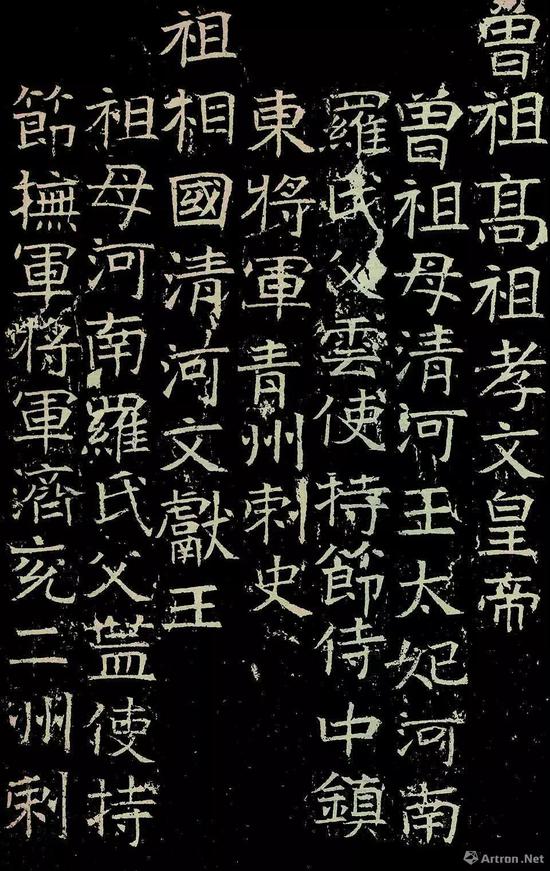 曾祖高祖孝文皇帝
曾祖母清河王太妃河南
羅氏父雲使持節侍中鎮
東將軍青州刺史
祖相國清河文獻王
祖母河南羅氏父蓋使持
節撫軍將軍濟兗二州刺
Artron.Net